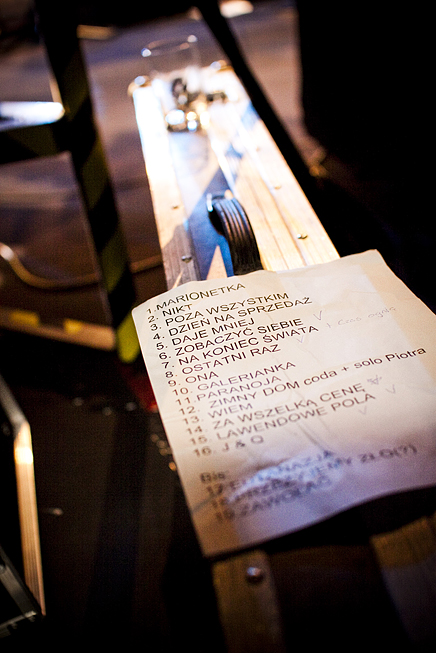 1. MARIONETKA
2. NIKT
3. POZA WSZYSTKIM
4. DZIEŃ NA SPRZEDAŻ
5. DAJE MNIEJ
6. ZOBACZYĆ SIEBIE
7. NA KONIEC ŚWIATA
8. OSTATNI RAZ
9. ONA
10. GALERIANKA
11. PARANOJA
12. ZIMNY DOM coda + solo Piotra
13. WIEM
14. ZA WSZELKĄ CENĘ
15. LAWENDOWE POLA
16. J & Q
Bis:
19. ZAWOŁAĆ